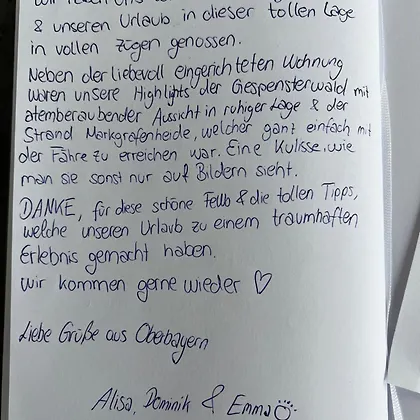 & unseren Urlaub in dieser tollen Lage
in vollen Zügen genossen.
Neben der liebevoll eingerichteten Wohnung
waren unsere Highlights der Gespensterwald mit
atemberaubender Aussicht in ruhiger Lage & der
Strand Markgrafenheide, welcher ganz einfach mit
der Fähre zu erreichen war. Eine Kulisse, wie
man sie sonst nur auf Bildern sieht.
DANKE, für diese schöne FeWo & die tollen Tipps,
welche unseren Urlaub zu einem traumhaften
Erlebnis gemacht haben.
Wir kommen gerne wieder ♡
Liebe Grüße aus Oberbayern
Alisa, Dominik & Emma